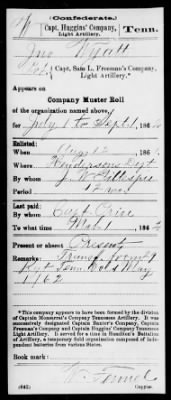 (Confederate.)
Capt. Huggins' Company,
Light Artillery,
Tenn.
Jno Wyatt
Capt. Sam L. Freeman's Company,
Light Artillery.*
Appears on
Company Muster Roll
of the organization named above,
for July 1 to Sept 1, 186
Enlisted:
When 186
Where Henderson's Dept
By whom
Period 12 mos
Last paid:
By whom Capt. Price
To what time 186
Present or absent Present
Remarks: Transf. from 19
Regt Tenn Vols May
1862
*This company appears to have been formed by the division of
Captain Monsarrat's Company Tennessee Artillery. It was
successively designated Captain Baxter's Company, Captain
Freeman's Company and Captain Huggins' Company Tennessee
Light Artillery. It served for a time in Hamilton's Battalion
of Artillery, a temporary field organization composed of independent
batteries from various States.
Book mark:
(645)
Copyist.